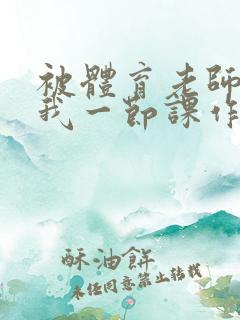 被體育老師
我一節課作
酥油餅
未經同意禁止轉載